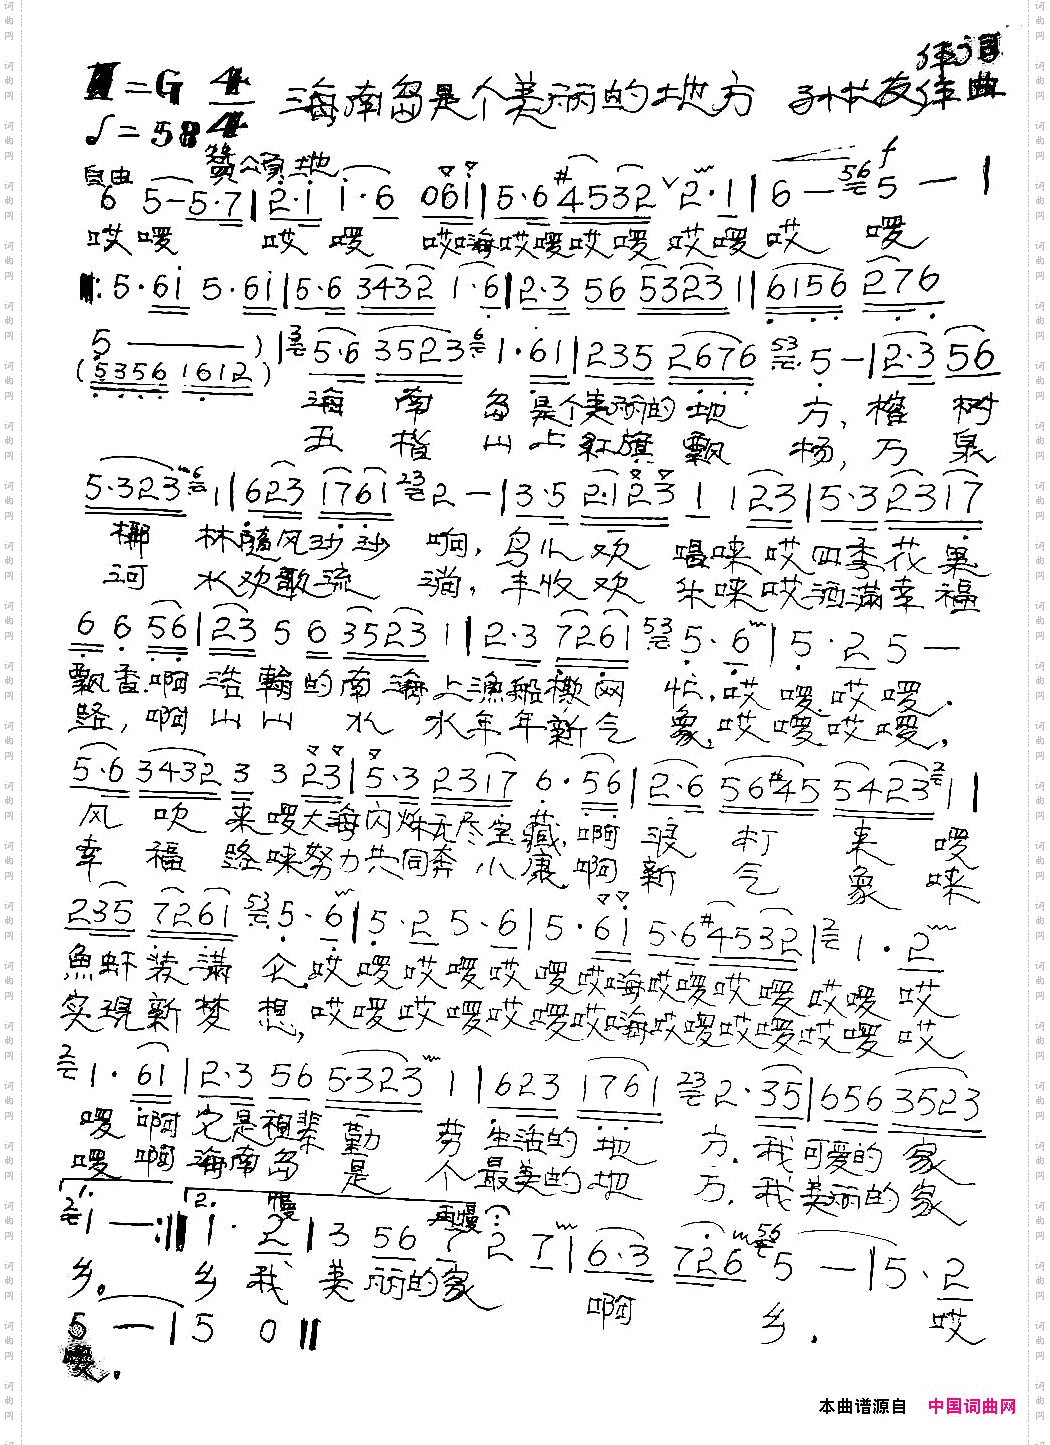 作词
1=G 4/4 海南岛是个美丽的地方 孙校友作曲
♩=58
自由 赞颂地
6 5－5·7|2·i i·6 06i|5·6 #4532 ∨ 2·1|6－ 56 5－|
哎啰 哎啰 哎嗨哎啰哎啰哎啰哎 啰
‖: 5·6i 5·6i|5·6 3432 1·6|2·3 56 5323 1|6156 276
5 ———)|3 5·6 3523 6 1·61|235 2676 53 5－|2·3 56
(5356 1612)
海南岛是个美丽的地方,榕树
五指山上红旗飘扬,万泉
5·323 6 1|623 1761 23 2－|3·5 2·123 1 123|5·3 2317
椰林随风沙沙响,鸟儿欢唱唻哎四季花果
河水欢歌流淌,丰收欢乐唻哎洒满幸福
6 6 56|23 5 6 3523 1|2·3 7261 53 5·6|5·2 5－
飘香.啊浩瀚的南海上渔船撒网忙,哎啰哎啰.
路,啊山山水水年年新气象,哎啰哎啰,
5·6 3432 3 3 23|5·3 2317 6·56|2·6 56#45 5423 2 1|
风吹来啰大海闪烁无尽宝藏,啊浪打来啰
幸福路唻努力共同奔小康,啊新气象唻
235 7261 53 5·6|5·2 5·6|5·6i 5·6#4532|2 1·2
鱼虾装满仓,哎啰哎啰哎啰哎嗨哎啰哎啰哎啰哎
实现新梦想,哎啰哎啰哎啰哎嗨哎啰哎啰哎啰哎
2 1·61|2·3 56 5·323 1|623 1761 23 2·35|656 3523
啰啊它是祖辈勤劳生活的地方.我可爱的家
啰啊海南岛是个最美的地方.我美丽的家
1. 2. 慢 再慢
2 1－:‖1·2|3 56 7 2 7|6·3 726 56 5－|5·2
乡。 乡我美丽的家 啊 乡. 哎
5－|5 0‖
啰.
本曲谱源自 中国词曲网